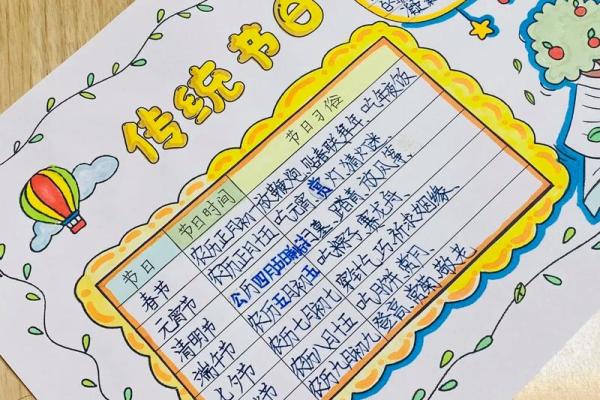 传统节日
节日 节日时间 节日习俗
春节 农历正月初一 放鞭炮、贴春联、拜年、吃年夜饭
元宵节 农历正月十五 吃元宵、赏灯、猜灯谜
清明节 公历四月5日 扫墓、踏青、放风筝
端午节 农历五月初五 吃粽子、赛龙舟
七夕节 农历七月初七 穿针乞巧、祈求姻缘
农历八月十五 吃月饼、赏月
农历九月初九 登高、赏菊